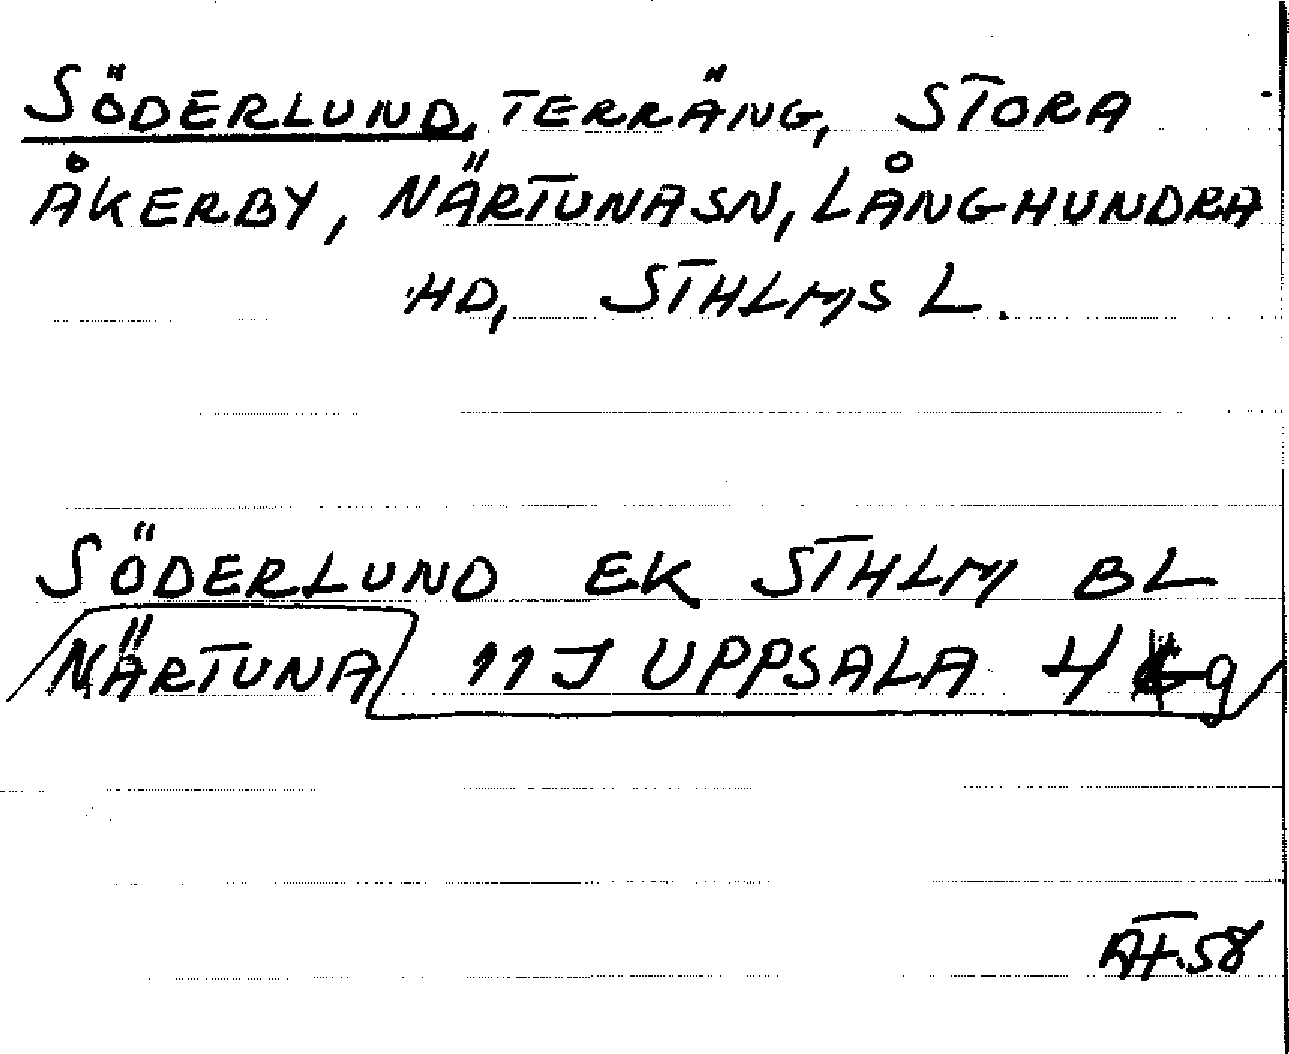 SÖDERLUND, TERRÄNG, STORA
ÅKERBY, NÄRTUNA SN, LÅNGHUNDRA
HD, STHLMS L.
SÖDERLUND EK STHLM BL
NÄRTUNA 11J UPPSALA 4 g
AT 58